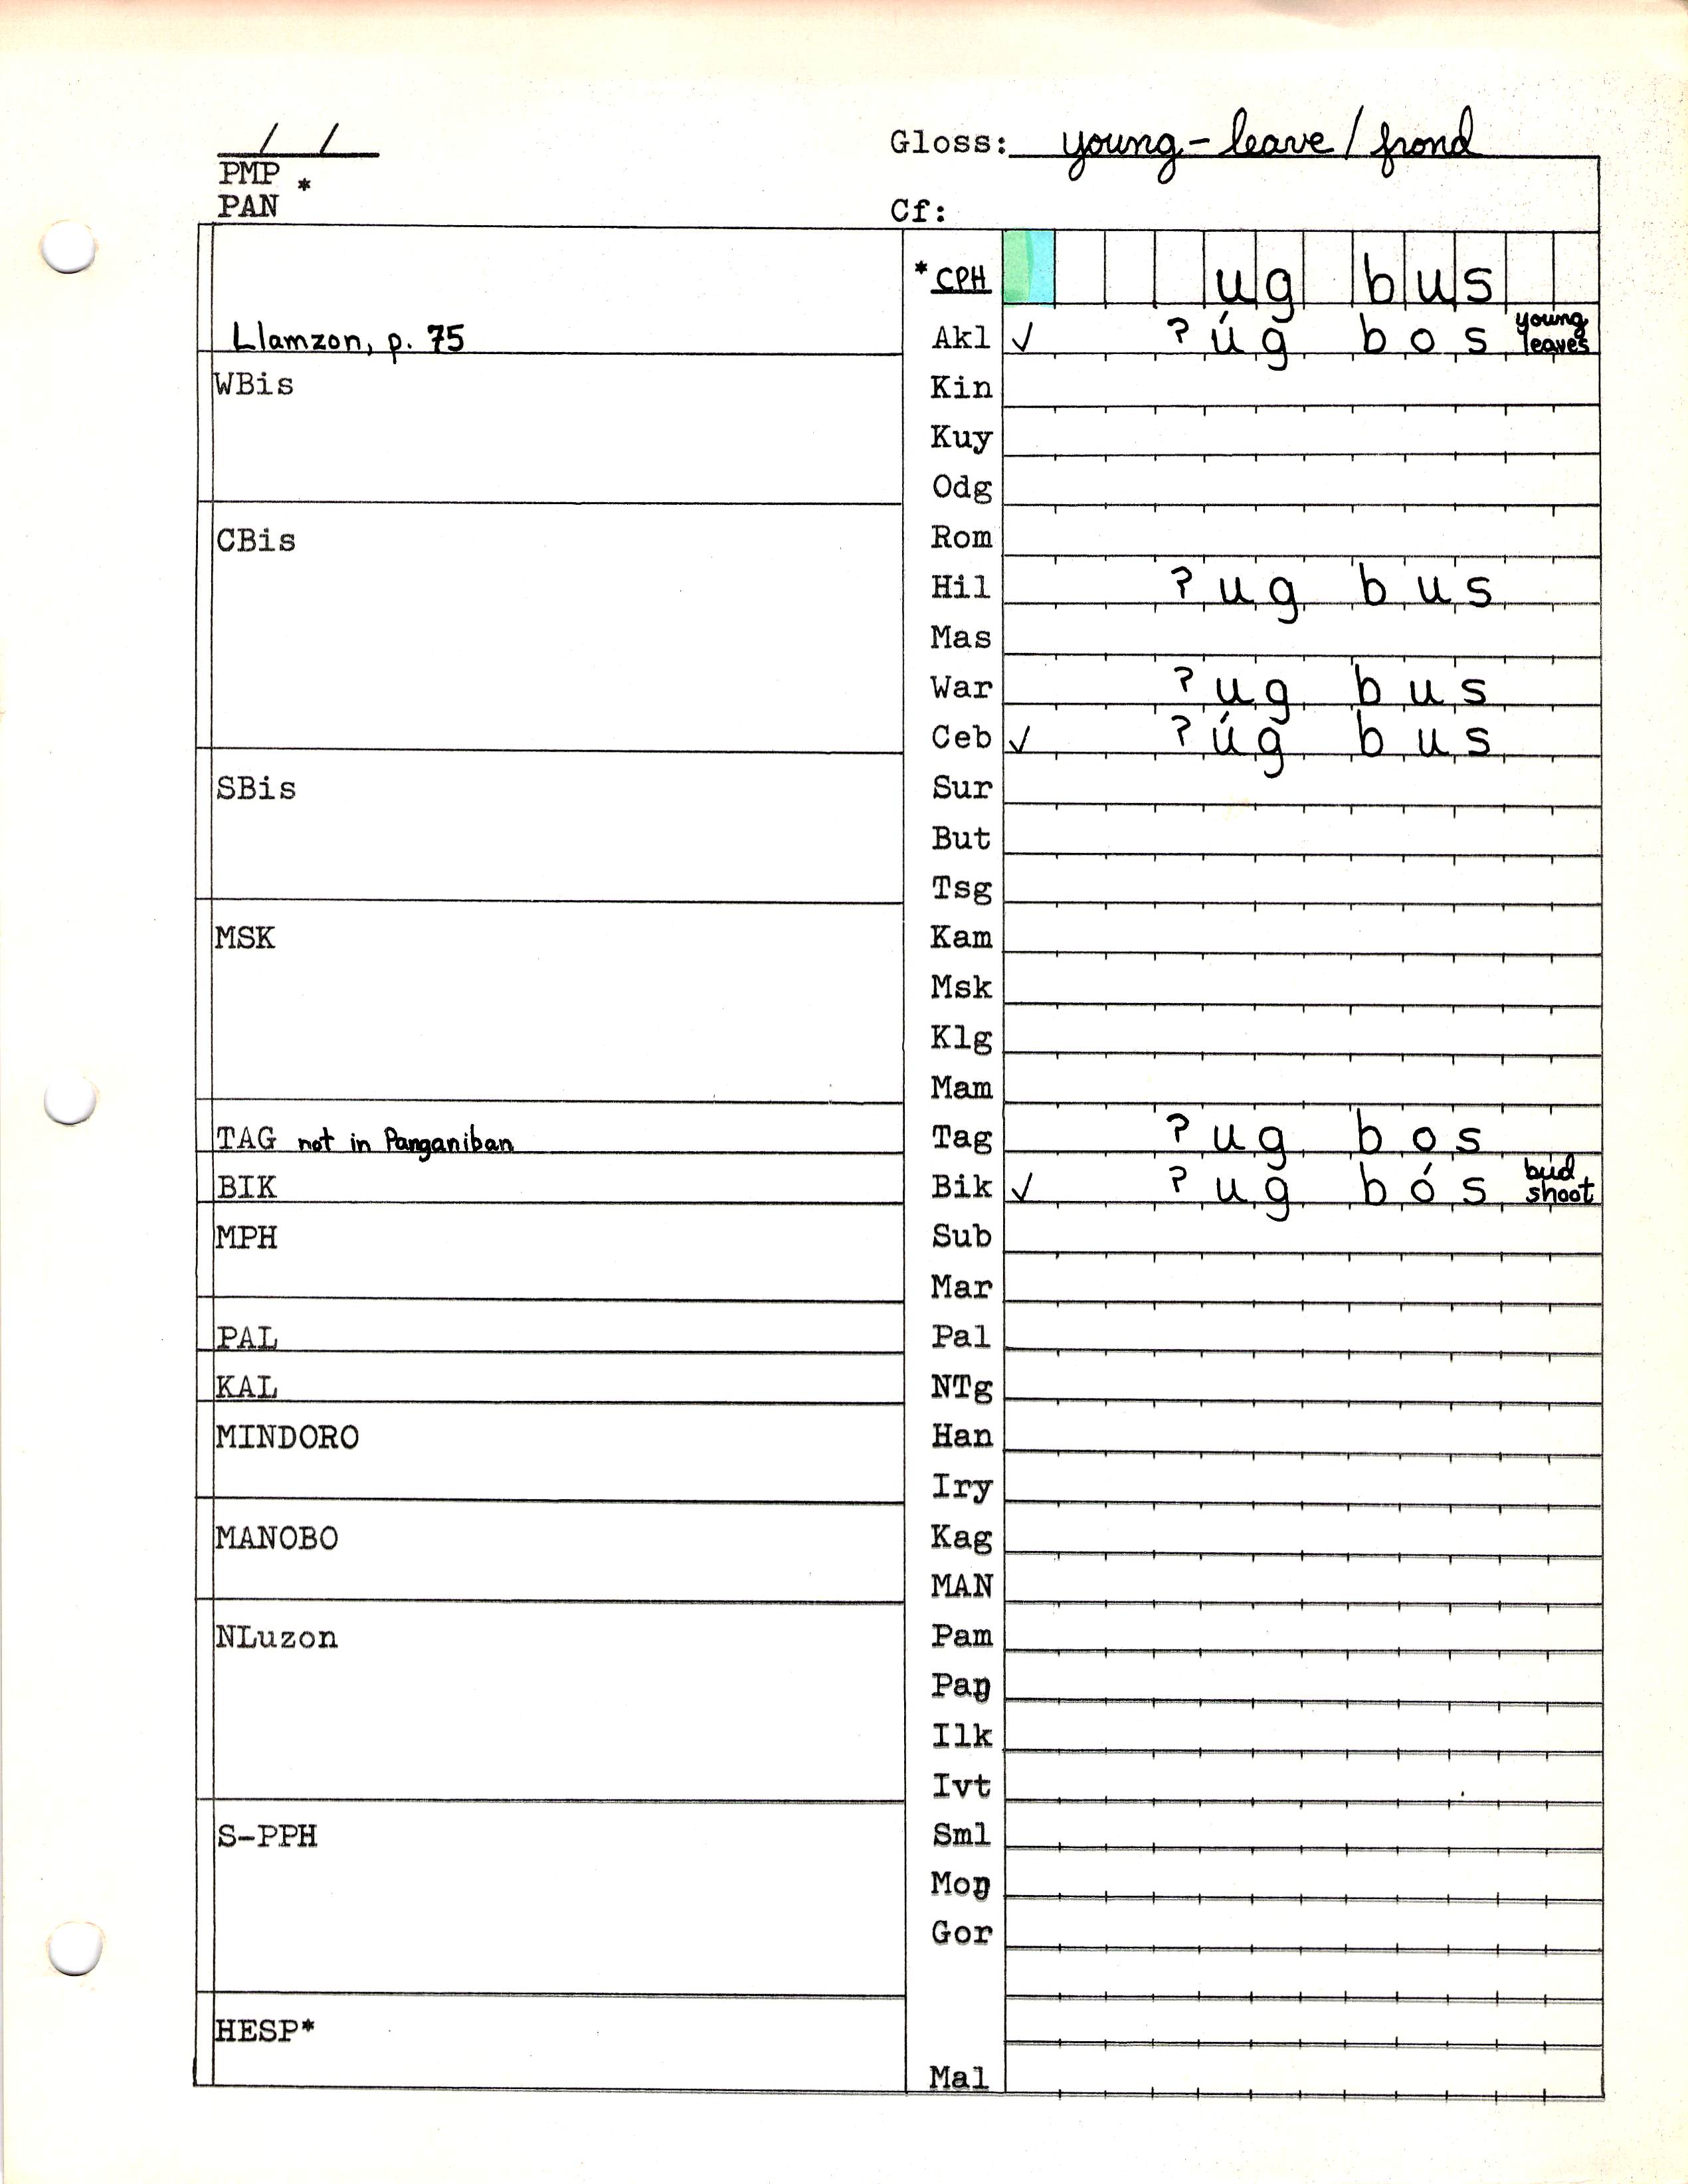 / /
Gloss: young-leave / frond
PMP *
PAN
Cf:
*CPH ug bus
Llamzon, p. 75
Akl ✓ ? úg bos young leaves
WBis
Kin
Kuy
Odg
CBis
Rom
Hil ? ug bus
Mas
War ? ug bus
Ceb ✓ ? úg bus
SBis
Sur
But
Tsg
MSK
Kam
Msk
Klg
Mam
TAG not in Panganiban
Tag ? ug bos
BIK
Bik ✓ ? ug bós bud shoot
MPH
Sub
Mar
PAL
Pal
KAL
NTg
MINDORO
Han
Iry
MANOBO
Kag
MAN
NLuzon
Pam
Paŋ
Ilk
Ivt
S-PPH
Sml
Moŋ
Gor
HESP*
Mal